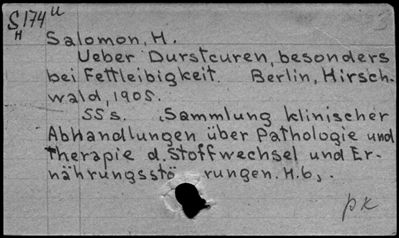 S174u
H
Salomon, H.
Ueber Durstcuren, besonders
bei Fettleibigkeit. Berlin, Hirsch-
wald, 1905.
SS s. (Sammlung klinischer
Abhandlungen über Pathologie und
Therapie d. Stoffwechsel und Er-
nährungsstö rungen. H.6).
px